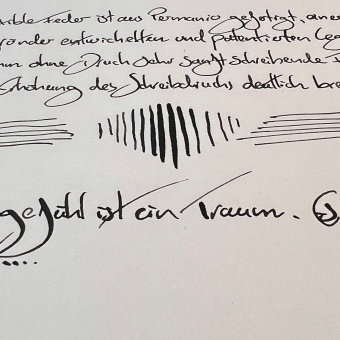 Feder ist aus Permanio gefertigt, einer
entwickelten und patentierten Leg
ohne Druck sehr sanft schreibende F
Erhöhung des Schreibdrucks deutlich bre
gefühl ist ein Traum.